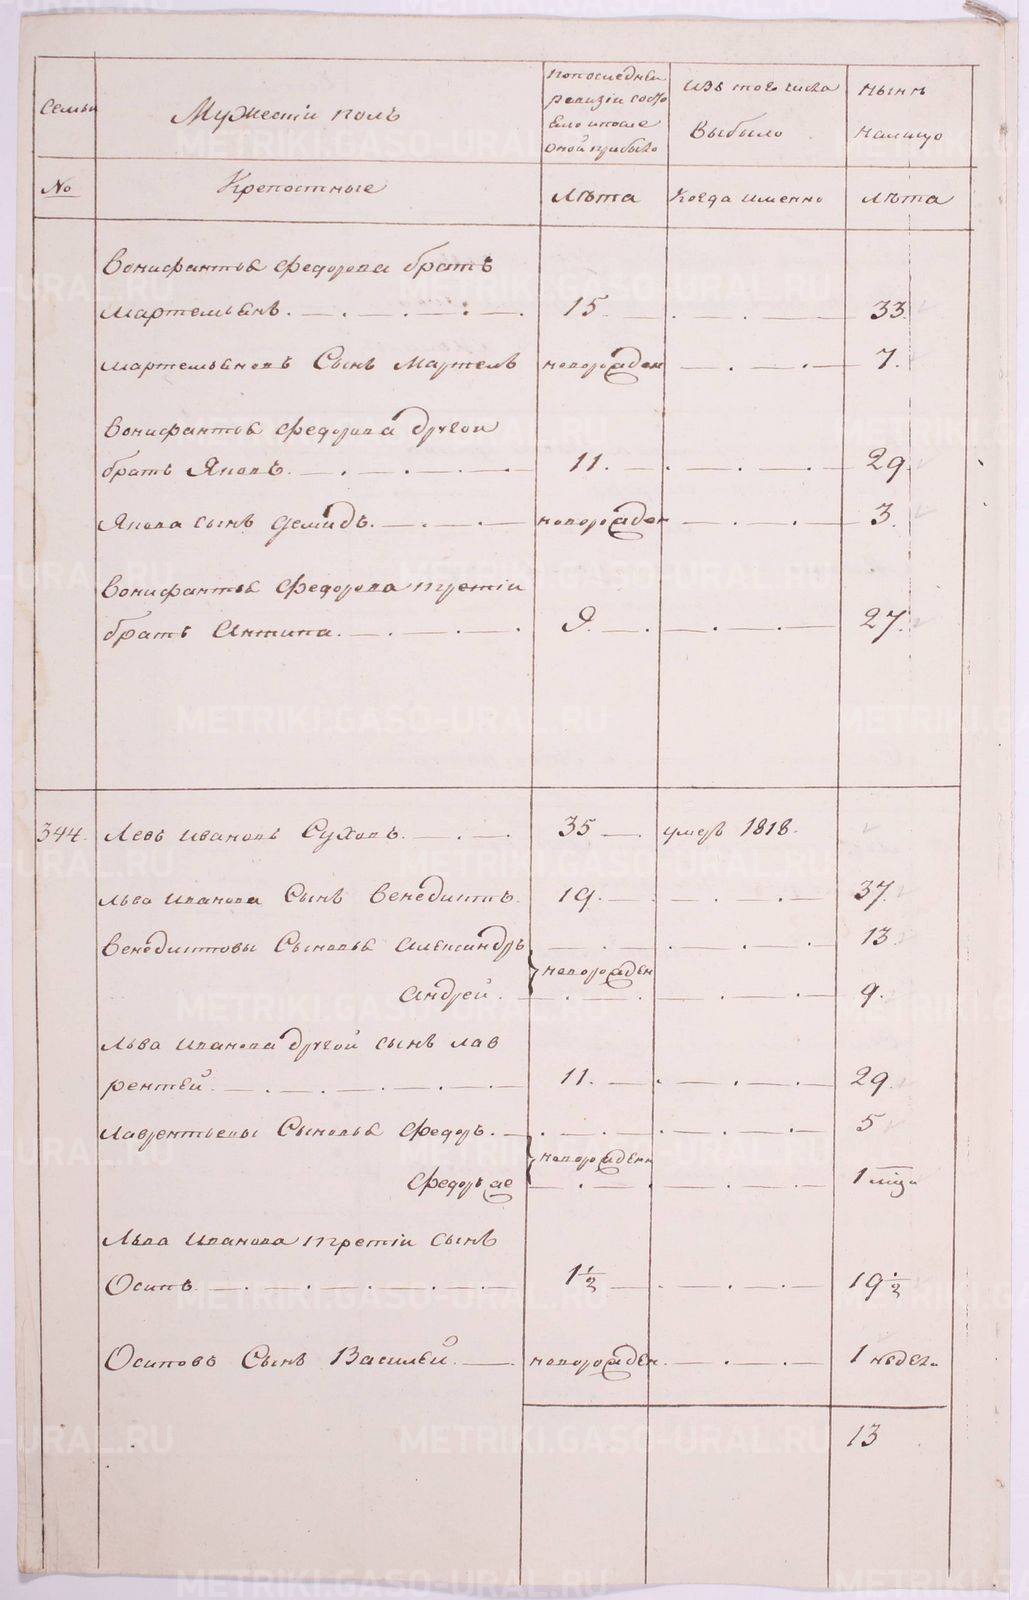 Семьи
Мужескiй полъ
По последней
ревизiи состо
яло и после
оной прибыло
Изъ того числа
выбыло
Нынѣ
на лицо
№
Крепостные
Лѣта
Когда именно
Лѣта
Вонифантья Федорова братъ
Мартемьянъ. 15 33
Мартемьяновъ Сынъ Мартелъ новорожден 7.
Вонифантья Федорова другои
братъ Яковъ. 11. 29
Якова сынъ Демидъ. новорожден 3.
Вонифантья Федорова третiи
братъ Антипа. 9. 27.
344. Левъ Ивановъ Суховъ. 35 умеръ 1818.
Льва Иванова Сынъ Венедиктъ. 19. 37.
Венедиктовы Сыновья Александръ 13.
новорожден
Андрей. 9.
Льва Иванова другой сынъ Лав
рентей. 11. 29
Лаврентьевы Сыновья Федоръ. 5
новорожден
Федоръ же 1 мѣця
Льва Иванова третiи сынъ
Осипъ 1 1/2 19 1/2
Осиповъ Сынъ Василей. новорожден. 1 недел.
13
METRIKI.GASO-URAL.RU